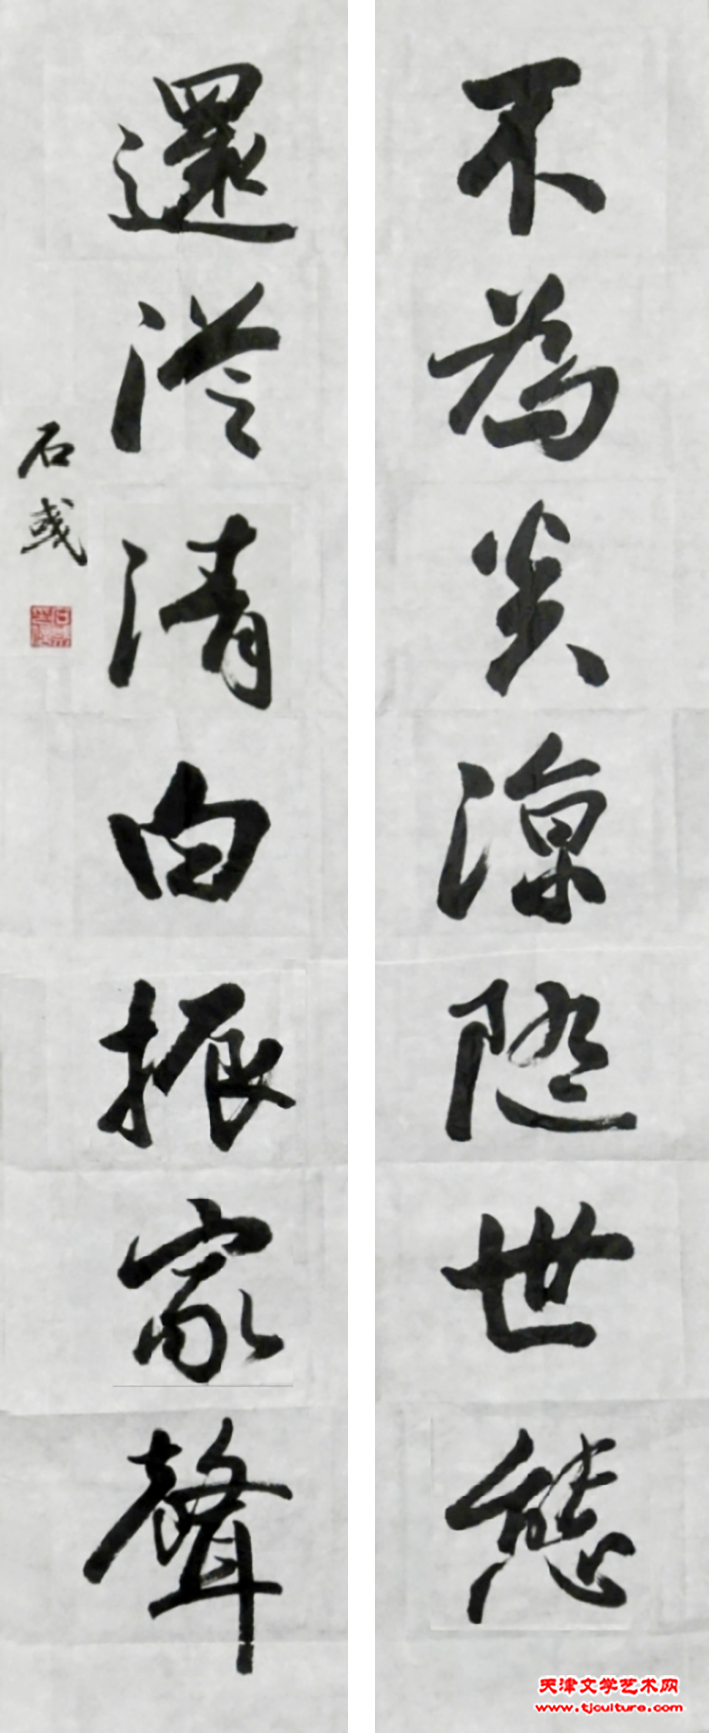 不為炎涼隨世態
還從清白振家聲
石彧
天津文学艺术网
www.tjculture.com